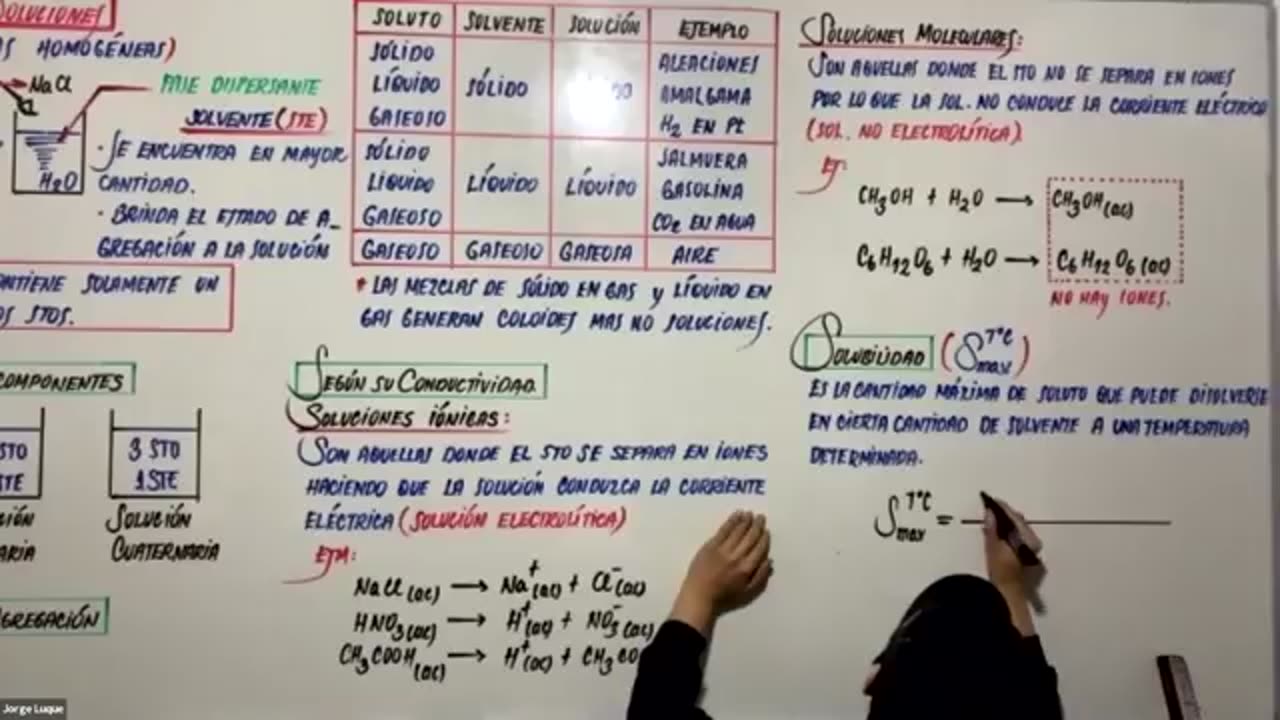 SOLUCIONES
HOMOGÉNEAS)
NaCl
FASE DISPERSANTE
SOLVENTE (STE)
H2O
· SE ENCUENTRA EN MAYOR
CANTIDAD.
· BRINDA EL ESTADO DE A_
GREGACIÓN A LA SOLUCIÓN
SOLAMENTE UN
STOS.
COMPONENTES
STO
STE
3 STO
1 STE
SOLUCIÓN
CUATERNARIA
SOLUTO SOLVENTE SOLUCIÓN EJEMPLO
SÓLIDO
LÍQUIDO
GASEOSO
SÓLIDO
ALEACIONES
AMALGAMA
H2 EN Pt
SÓLIDO
LÍQUIDO
GASEOSO
LÍQUIDO LÍQUIDO
SALMUERA
GASOLINA
CO2 EN AGUA
GASEOSO GASEOSO GASEOSA AIRE
* LAS MEZCLAS DE SÓLIDO EN GAS y LÍQUIDO EN
GAS GENERAN COLOIDES MAS NO SOLUCIONES.
SEGÚN SU CONDUCTIVIDAD
SOLUCIONES IÓNICAS:
SON AQUELLAS DONDE EL STO SE SEPARA EN IONES
HACIENDO QUE LA SOLUCIÓN CONDUZCA LA CORRIENTE
ELÉCTRICA (SOLUCIÓN ELECTROLÍTICA)
EJM:
NaCl(ac) ⟶ Na+(ac) + Cl-(ac)
HNO3(ac) ⟶ H+(ac) + NO3-(ac)
CH3COOH(ac) ⟶ H+(ac) + CH3CO
SOLUCIONES MOLECULARES:
SON AQUELLAS DONDE EL STO NO SE SEPARA EN IONES
POR LO QUE LA SOL. NO CONDUCE LA CORRIENTE ELÉCTRICA
(SOL. NO ELECTROLÍTICA)
EJ:
CH3OH + H2O ⟶ CH3OH(ac)
C6H12O6 + H2O ⟶ C6H12O6(ac)
NO HAY IONES.
SOLUBILIDAD (S T°C max)
ES LA CANTIDAD MÁXIMA DE SOLUTO QUE PUEDE DISOLVERSE
EN CIERTA CANTIDAD DE SOLVENTE A UNA TEMPERATURA
DETERMINADA.
S T°C max =
Jorge Luque